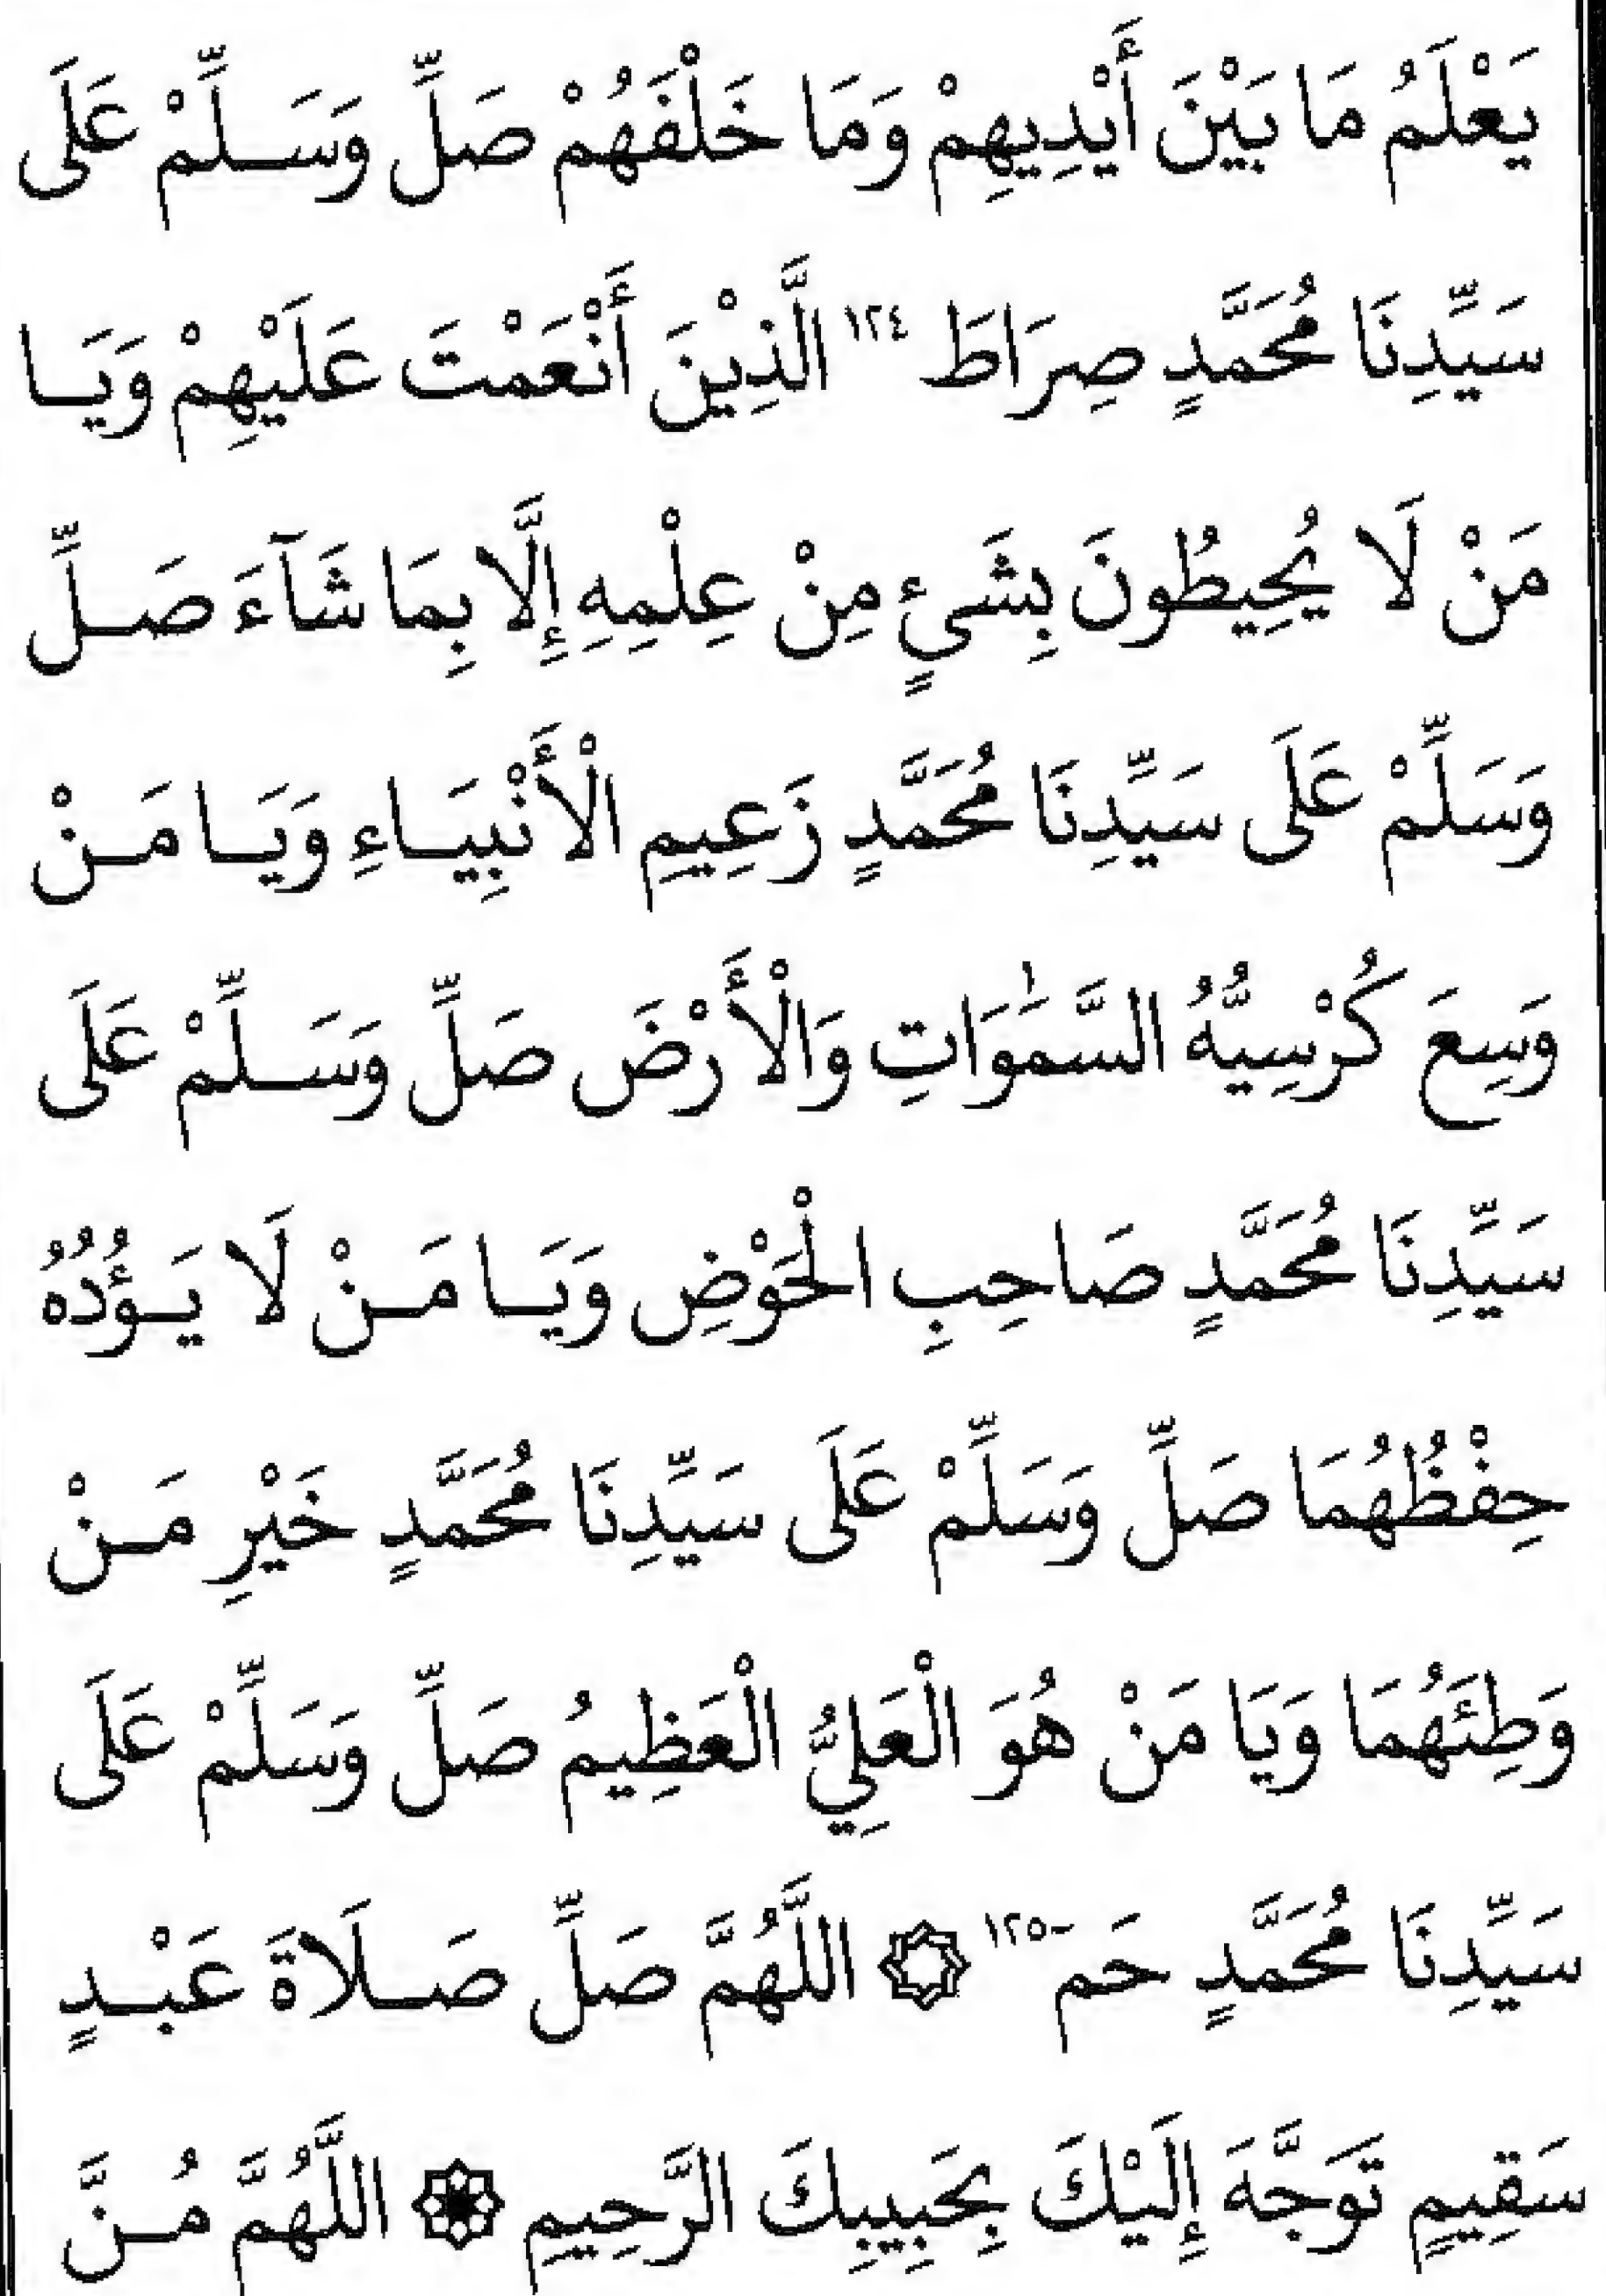 يَعْلَمُ مَا بَيْنَ أَيْدِيهِمْ وَمَا خَلْفَهُمْ صَلِّ وَسَلِّمْ عَلَى
سَيِّدِنَا مُحَمَّدٍ صِرَاطَ ١٢٤ الَّذِيْنَ أَنْعَمْتَ عَلَيْهِمْ وَيَا
مَنْ لَا يُحِيطُونَ بِشَيءٍ مِنْ عِلْمِهِ إِلَّا بِمَا شَآءَ صَلِّ
وَسَلِّمْ عَلَى سَيِّدِنَا مُحَمَّدٍ زَعِيمِ الْأَنْبِيَاءِ وَيَا مَنْ
وَسِعَ كُرْسِيُّهُ السَّمٰوَاتِ وَالْأَرْضَ صَلِّ وَسَلِّمْ عَلَى
سَيِّدِنَا مُحَمَّدٍ صَاحِبِ الْحَوْضِ وَيَا مَنْ لَا يَؤُدُهُ
حِفْظُهُمَا صَلِّ وَسَلِّمْ عَلَى سَيِّدِنَا مُحَمَّدٍ خَيْرِ مَنْ
وَطِئَهُمَا وَيَا مَنْ هُوَ الْعَلِيُّ الْعَظِيمُ صَلِّ وَسَلِّمْ عَلَى
سَيِّدِنَا مُحَمَّدٍ حَم -١٢٥ ۞ اللَّهُمَّ صَلِّ صَلَاةَ عَبْدٍ
سَقِيمٍ تَوَجَّهَ إِلَيْكَ بِحَبِيبِكَ الرَّحِيمِ ۞ اللَّهُمَّ مُنَّ